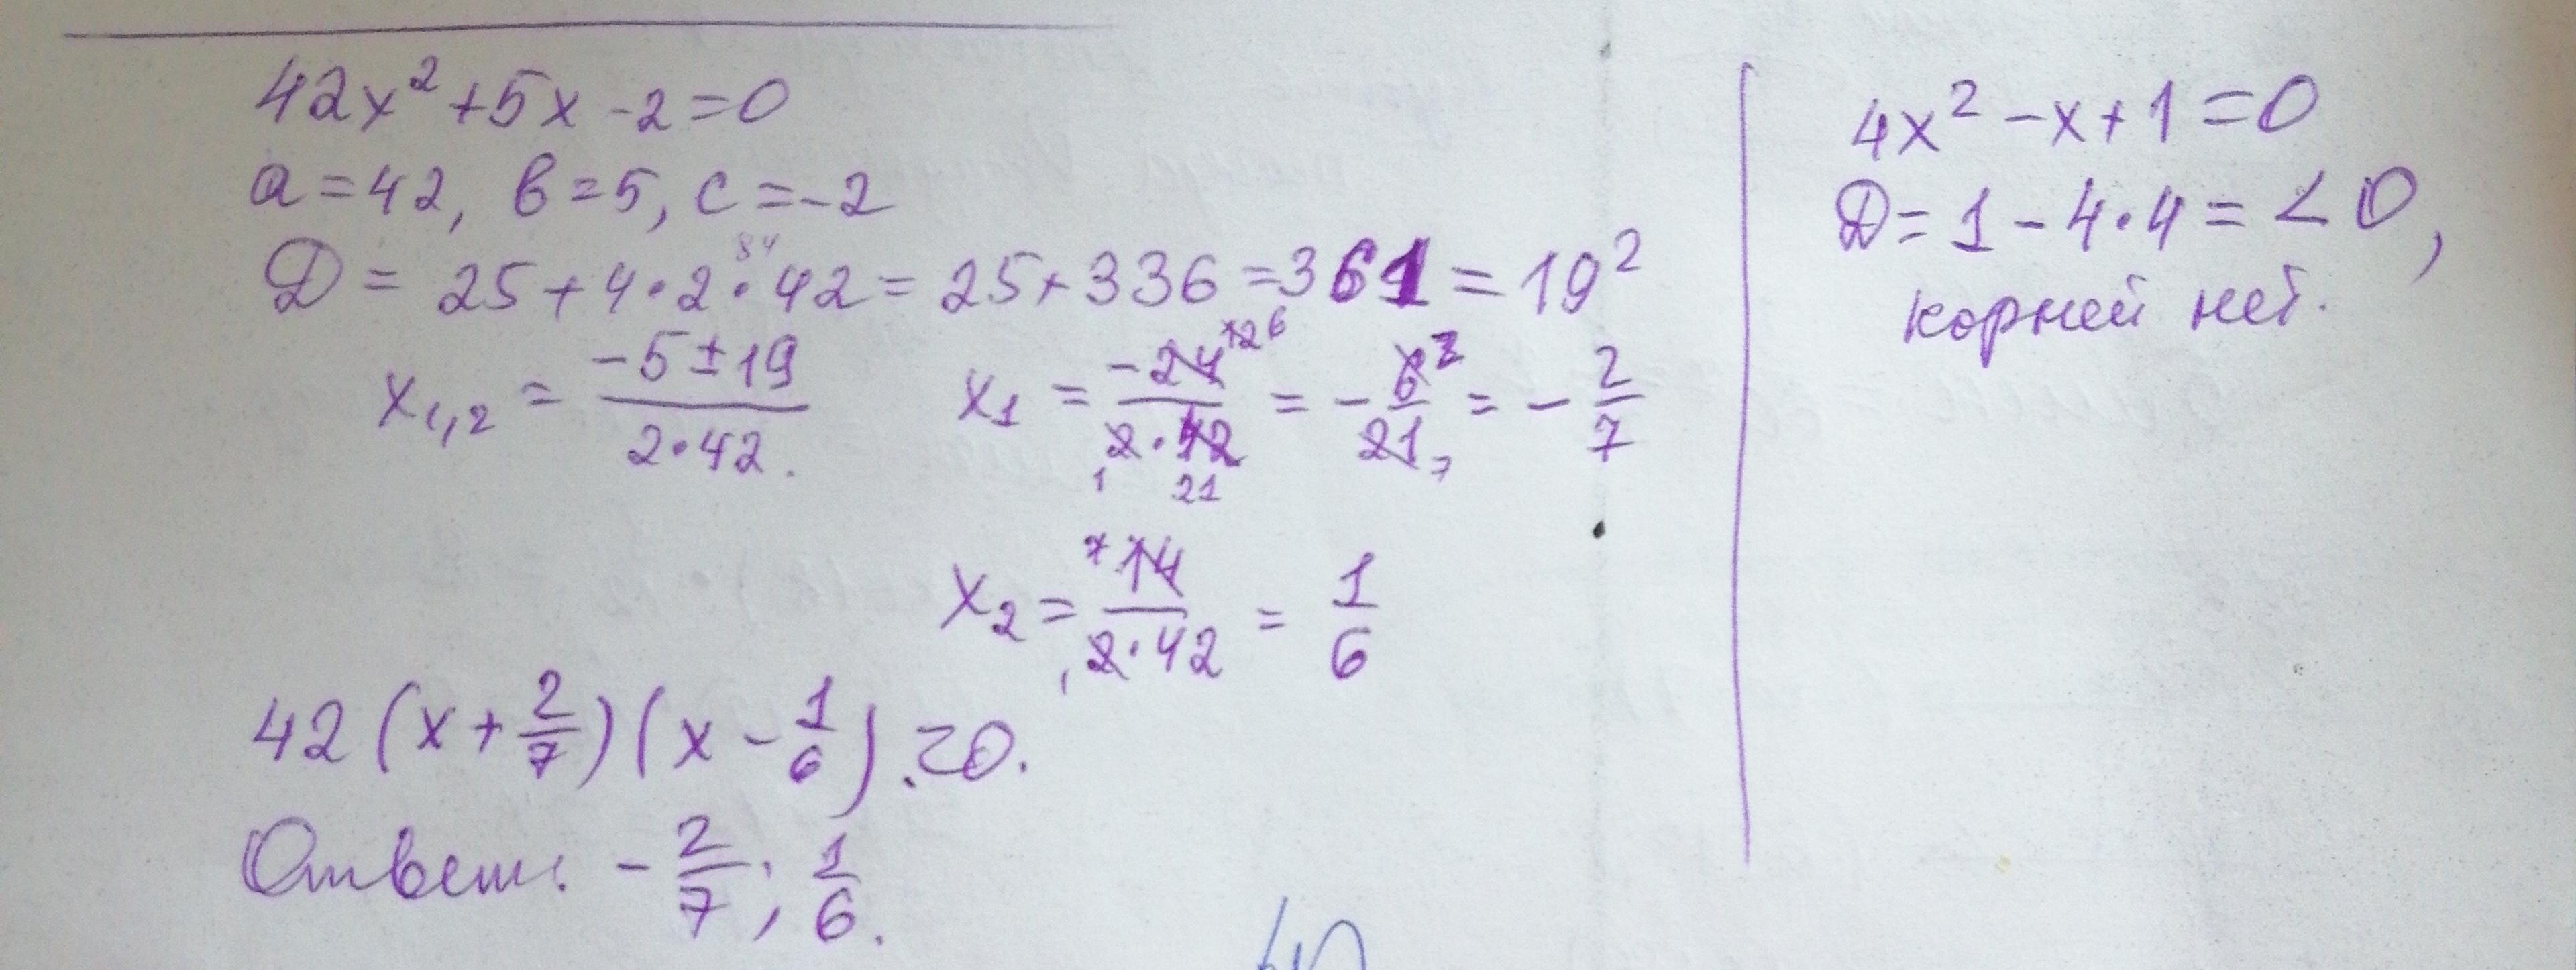 42x² + 5x - 2 = 0
a = 42, в = 5, c = -2
84
D = 25 + 4·2·42 = 25 + 336 = 361 = 19²
x₁,₂ = (-5 ± 19)/(2·42). x₁ = -24/(2·42) = -6/21 = -2/7
12 6 2
1 21 7
x₂ = 14/(2·42) = 1/6
7
1
42(x + 2/7)(x - 1/6) = 0.
Ответ: -2/7; 1/6.
4x² - x + 1 = 0
D = 1 - 4·4 = < 0,
корней нет.